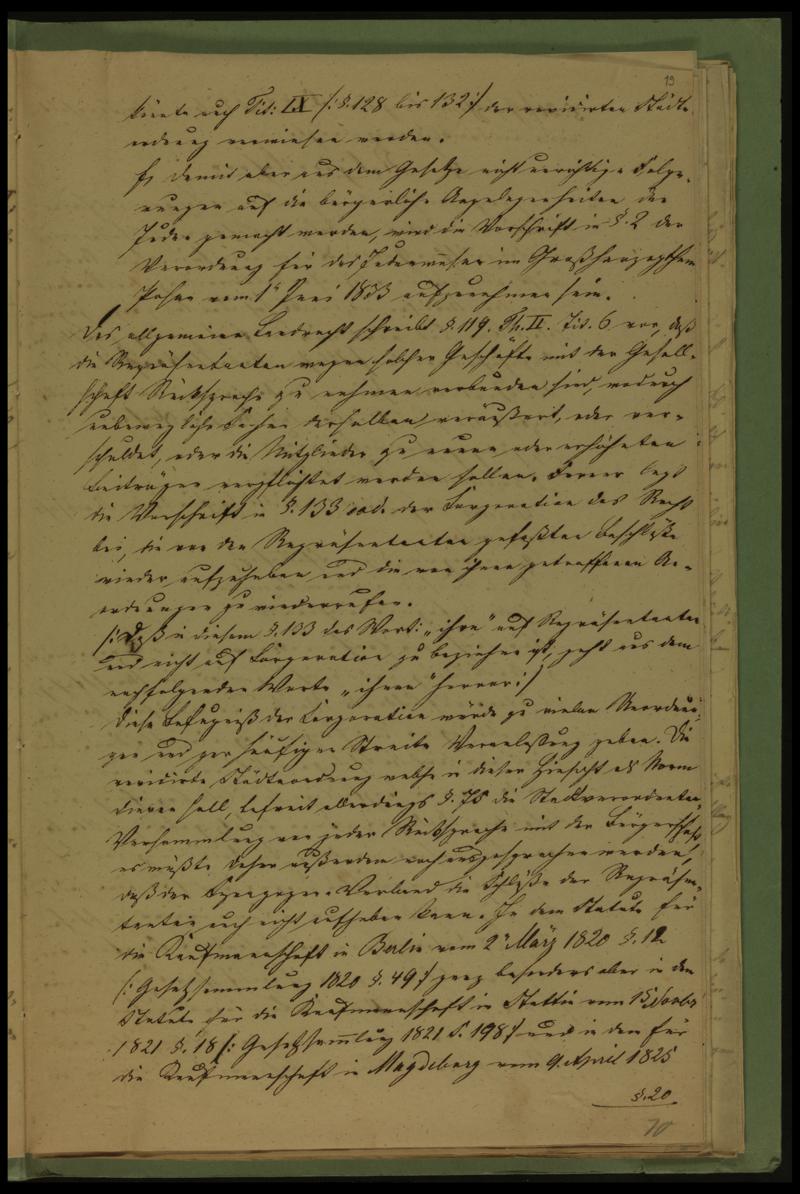 19
könnte auf Tit: IX /: §. 128 bis 132 :/ der revidirten Städte
ordnung verwiesen werden.
f, damit aber aus dem Gesetze nicht unrichtige Folge-
rungen auf die bürgerliche Angelegenheiten der
Juden gemacht werden, wird die Vorschrift in §. 2 der
Verordnung für das Judenwesen im Großherzogthum
Posen vom 1t Juni 1833 aufzunehmen sein.
Das allgemeine Landrecht schreibt §. 119. Th. II. Tit. 6 vor, daß
die Repräsentanten wegen solcher Geschäfte mit der Gesell-
schaft Rücksprache zu nehmen verbunden sind, wodurch
unbewegliche Sachen derselben veräußert, oder ver-
schuldet, oder die Mitglieder zu neuen oder erhöheten
Beiträgen verpflichtet werden sollen. Ferner legt
die Vorschrift in §. 133 eod. der Corporation das Recht
bei, die von den Repräsentanten gefaßten Beschlüße
wieder aufzuheben und die von ihnen getroffenen An-
ordnungen zu wiederrufen.
/: Daß in diesem §. 133 das Wort: „ihre" auf Repräsentanten
und nicht auf Corporation zu beziehen ist, geht aus dem
nachfolgenden Worte „ihnen" hervor :/
Diese Befugniß der Corporation würde zu vielen Unordnun-
gen und gar häufigem Streite Veranlaßung geben. Die
revidirte Städteordnung welche in dieser Hinsicht als Norm
dienen soll, befreit allerdings §. 75 die Stadtverordneten-
Versammlung von jeder Rücksprache mit der Bürgerschaft
es müßte daher außerdem noch ausgesprochen werden,
daß der Synagogen-Verband die Schlüße der Repräsen-
tanten auch nicht aufheben kann. In dem Statute für
die Kaufmannschaft in Berlin vom 2t März 1820 §. 12
/: Gesetzsammlung 1820 S. 49 :/ ganz besonders aber in dem
Statute für die Kaufmannschaft in Stettin vom 15 Novbr
1821 §. 18 /: Gesetzsammlung 1821 S. 198 :/ und in dem für
die Kaufmannschaft in Magdeburg vom 9. April 1825
§. 20
70